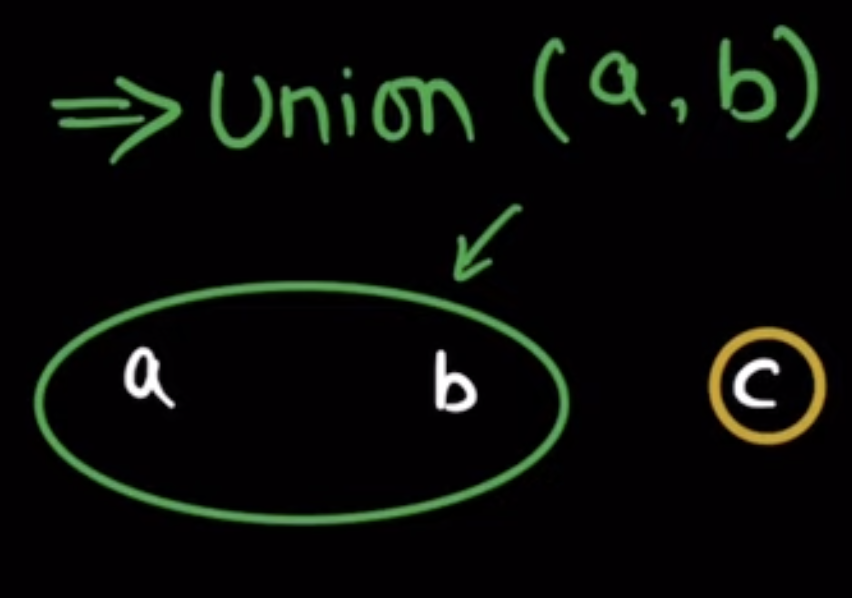 ⇒ Union (a, b)
a b c